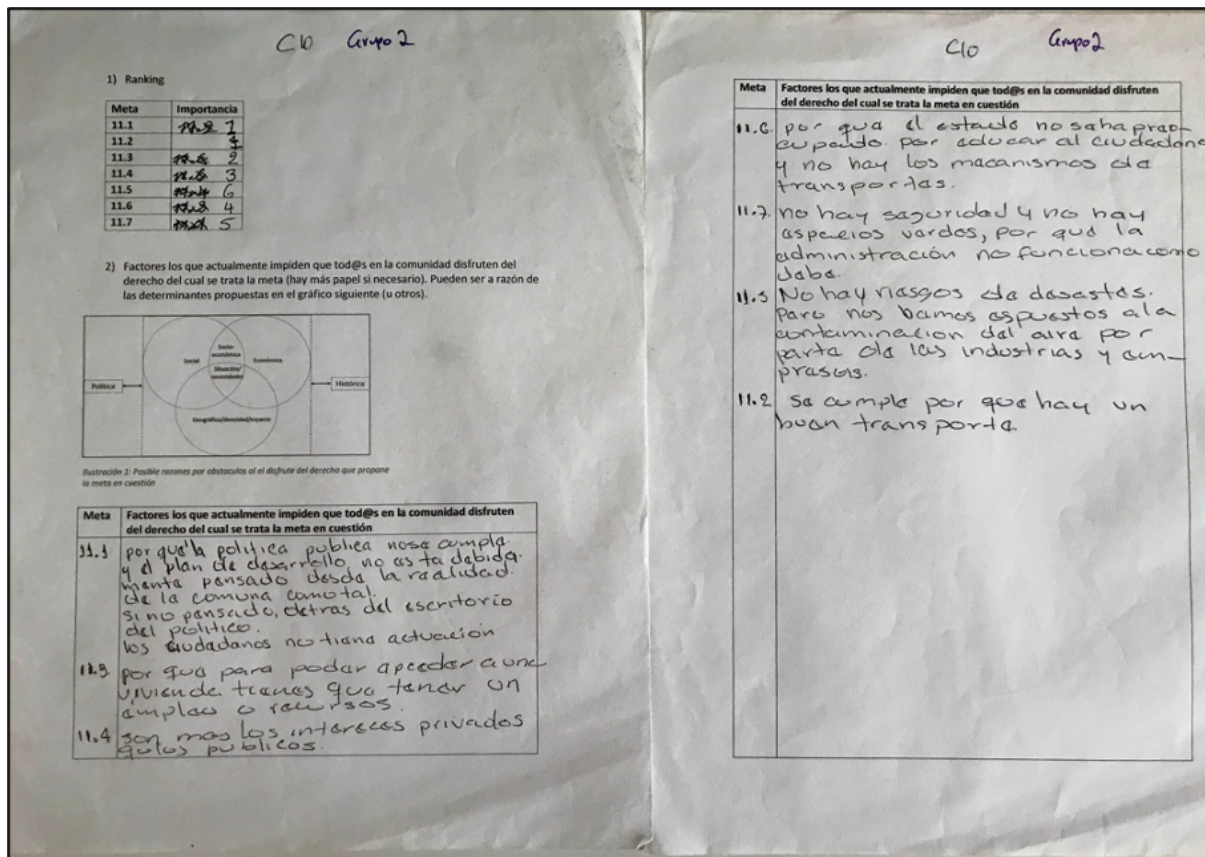 C10 Grupo 2
1) Ranking
Meta Importancia
11.1 1
11.2 7
11.3 2
11.4 3
11.5 6
11.6 4
11.7 5
2) Factores los que actualmente impiden que tod@s en la comunidad disfruten del
derecho del cual se trata la meta (hay más papel si necesario). Pueden ser a razón de
las determinantes propuestas en el gráfico siguiente (u otros).
Socio-
económico
Social
Económico
Situación/
necesidades
Política
Histórica
Geográfica/densidad/espacio
Ilustración 1: Posible razones por obstaculos al el disfrute del derecho que propone
la meta en cuestión
Meta Factores los que actualmente impiden que tod@s en la comunidad disfruten
del derecho del cual se trata la meta en cuestión
11.1 por que la politica publica nose cumple
y el plan de desarrollo, no esta debida
mente pensado desde la realidad.
de la comuna como tal.
sino pensado, detras del escritorio
del politico.
los ciudadanos no tiene actuación
11.3 por que para poder apceder a una
vivienda tienes que tener un
empleo o recursos.
11.4 son mas los intereces privados
qulos publicos.
C10 Grupo 2
Meta Factores los que actualmente impiden que tod@s en la comunidad disfruten
del derecho del cual se trata la meta en cuestión
11.6 por que el estado no saha preo-
cupado por educar al ciudadano
y no hay los mecanismos de
transportes.
11.7 no hay seguridad y no hay
espacios verdes, por que la
administración no funciona como
debe.
11.5 No hay riesgos de desastes.
Pero nos bemos espuestos ala
contaminacion del aire por
parte de las industrias y em-
presas.
11.2 se cumple por que hay un
buen transporte.